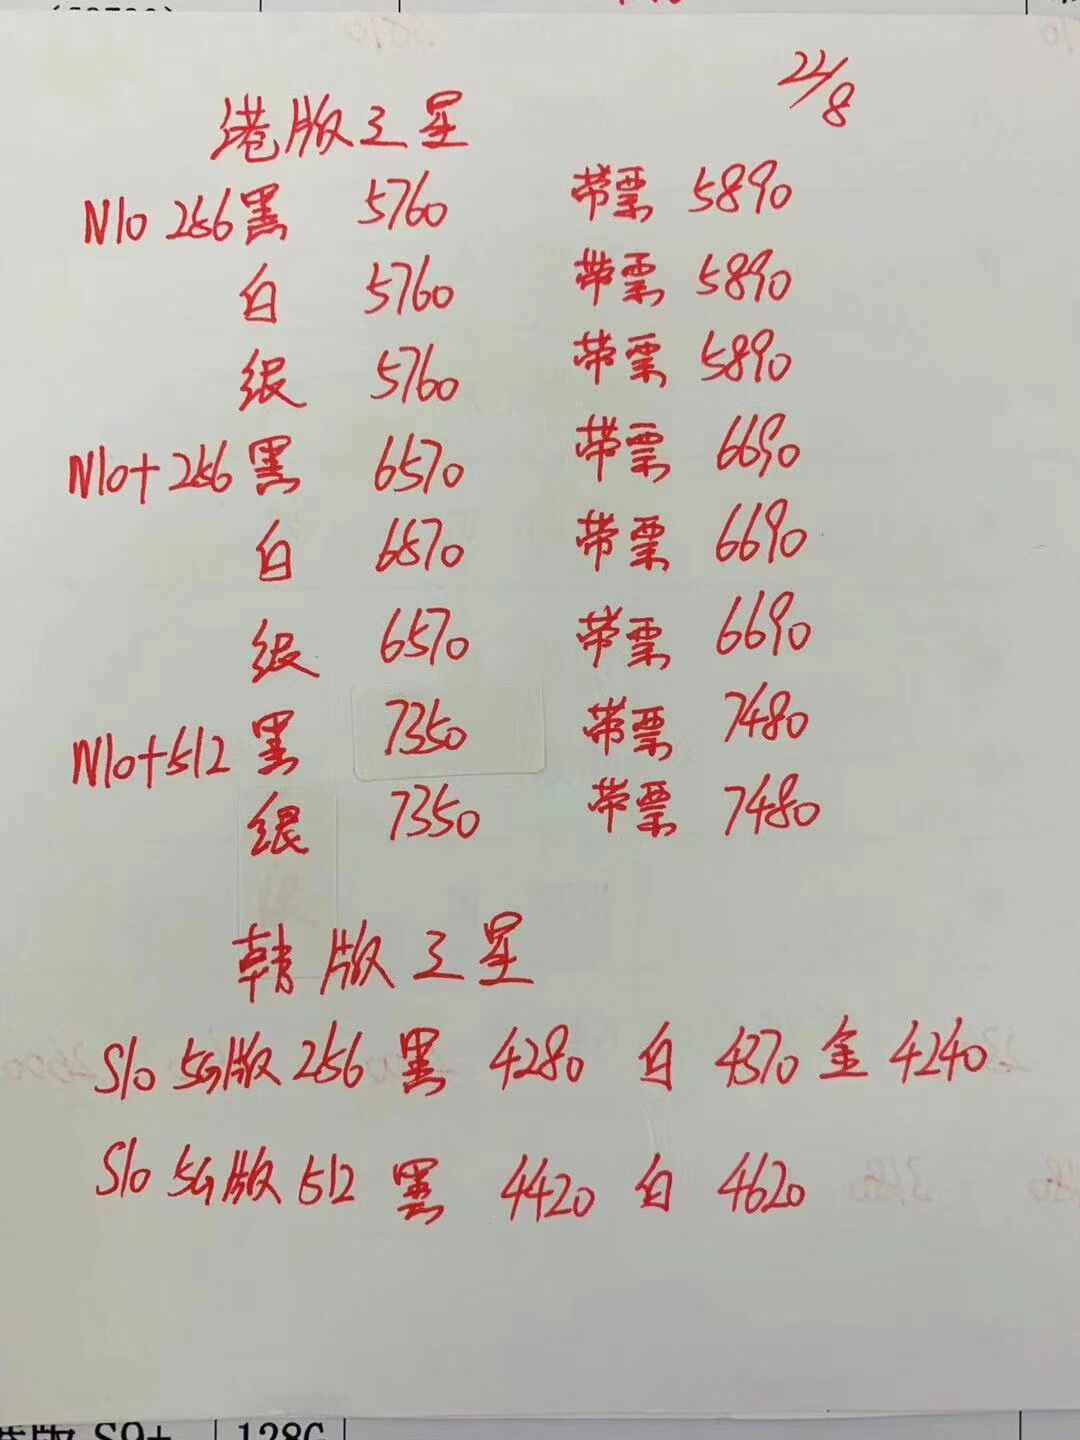 22/8
港版三星
N10 256黑 5760 带票 5890
白 5760 带票 5890
银 5760 带票 5890
N10+ 256黑 6570 带票 6690
白 6570 带票 6690
银 6570 带票 6690
N10+512 黑 7350 带票 7480
银 7350 带票 7480
韩版三星
S10 5G版 256 黑 4280 白 4370 金 4240
S10 5G版 512 黑 4420 白 4620
港版 S9+ 128G